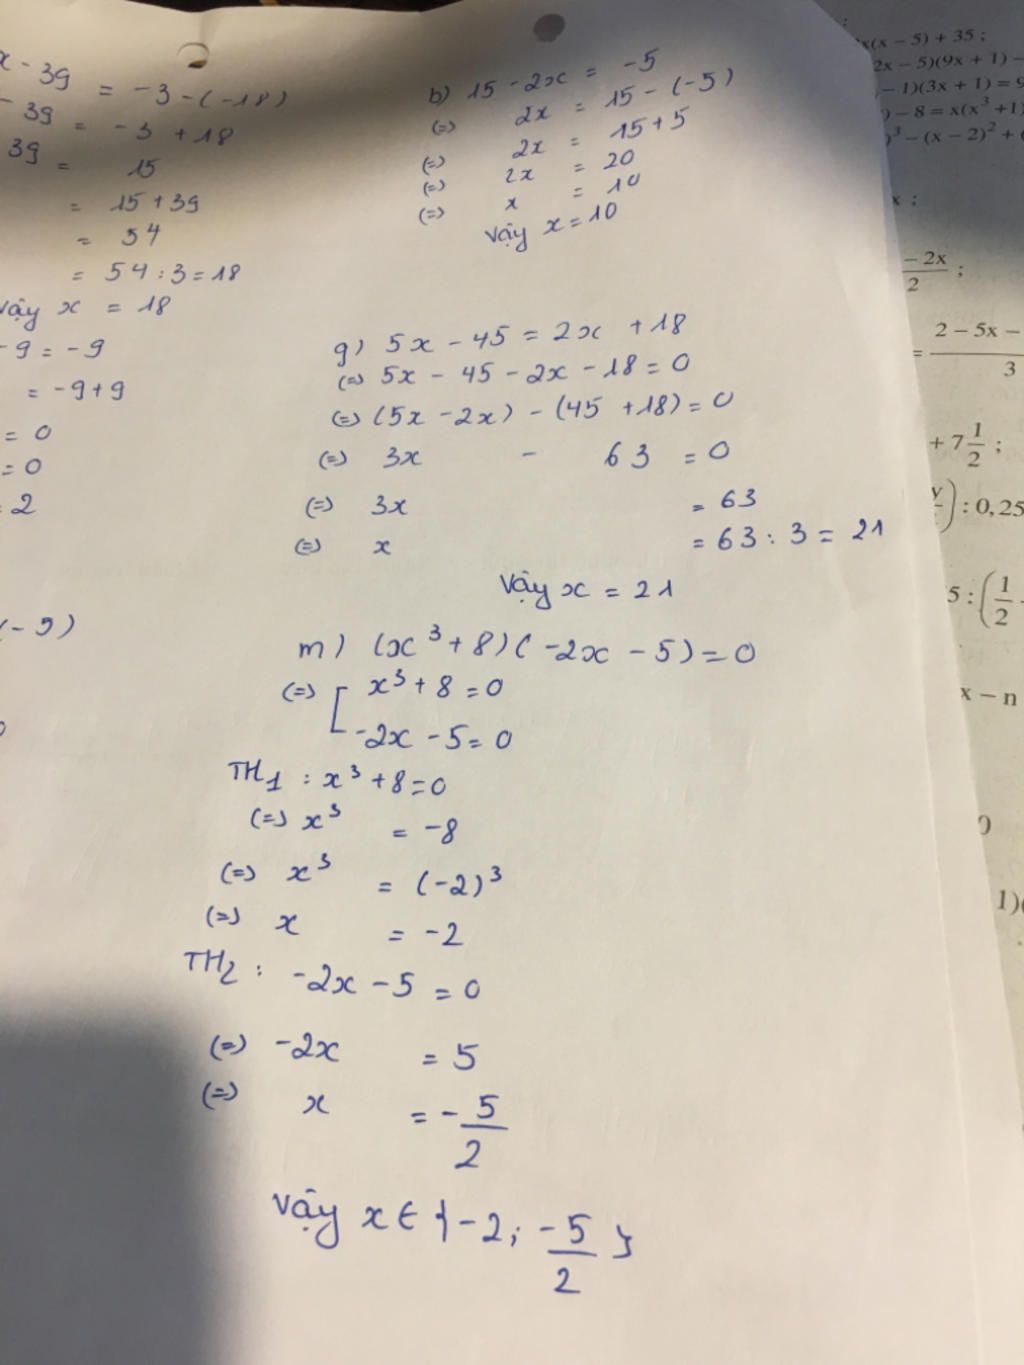 x - 39 = -3 - (-18)
- 39 = -3 + 18
39 = 15
= 15 + 39
= 54
= 54 : 3 = 18
Vậy x = 18
- 9 = -9
= -9 + 9
= 0
= 0
= 2
(-9)
b) 15 - 2x = -5
(=) 2x = 15 - (-5)
(=) 2x = 15 + 5
(=) 2x = 20
(=) x = 10
Vậy x = 10
g) 5x - 45 = 2x + 18
(=) 5x - 45 - 2x - 18 = 0
(=) (5x - 2x) - (45 + 18) = 0
(=) 3x - 63 = 0
(=) 3x = 63
(=) x = 63 : 3 = 21
Vậy x = 21
m) (x³ + 8)( -2x - 5) = 0
(=) [ x³ + 8 = 0
-2x - 5 = 0
TH1 : x³ + 8 = 0
(=) x³ = -8
(=) x³ = (-2)³
(=) x = -2
TH2 : -2x - 5 = 0
(=) -2x = 5
(=) x = -5/2
Vậy x ∈ {-2; -5/2}
x(x − 5) + 35 ;
2x − 5)(9x + 1) −
− 1)(3x + 1) = 9
) − 8 = x(x³ + 1)
)³ − (x − 2)² + (
x ;
− 2x/2 ;
= 2 − 5x −/3
+ 7 1/2 ;
) : 0,25
5 : (1/2
x − n
0
1)(